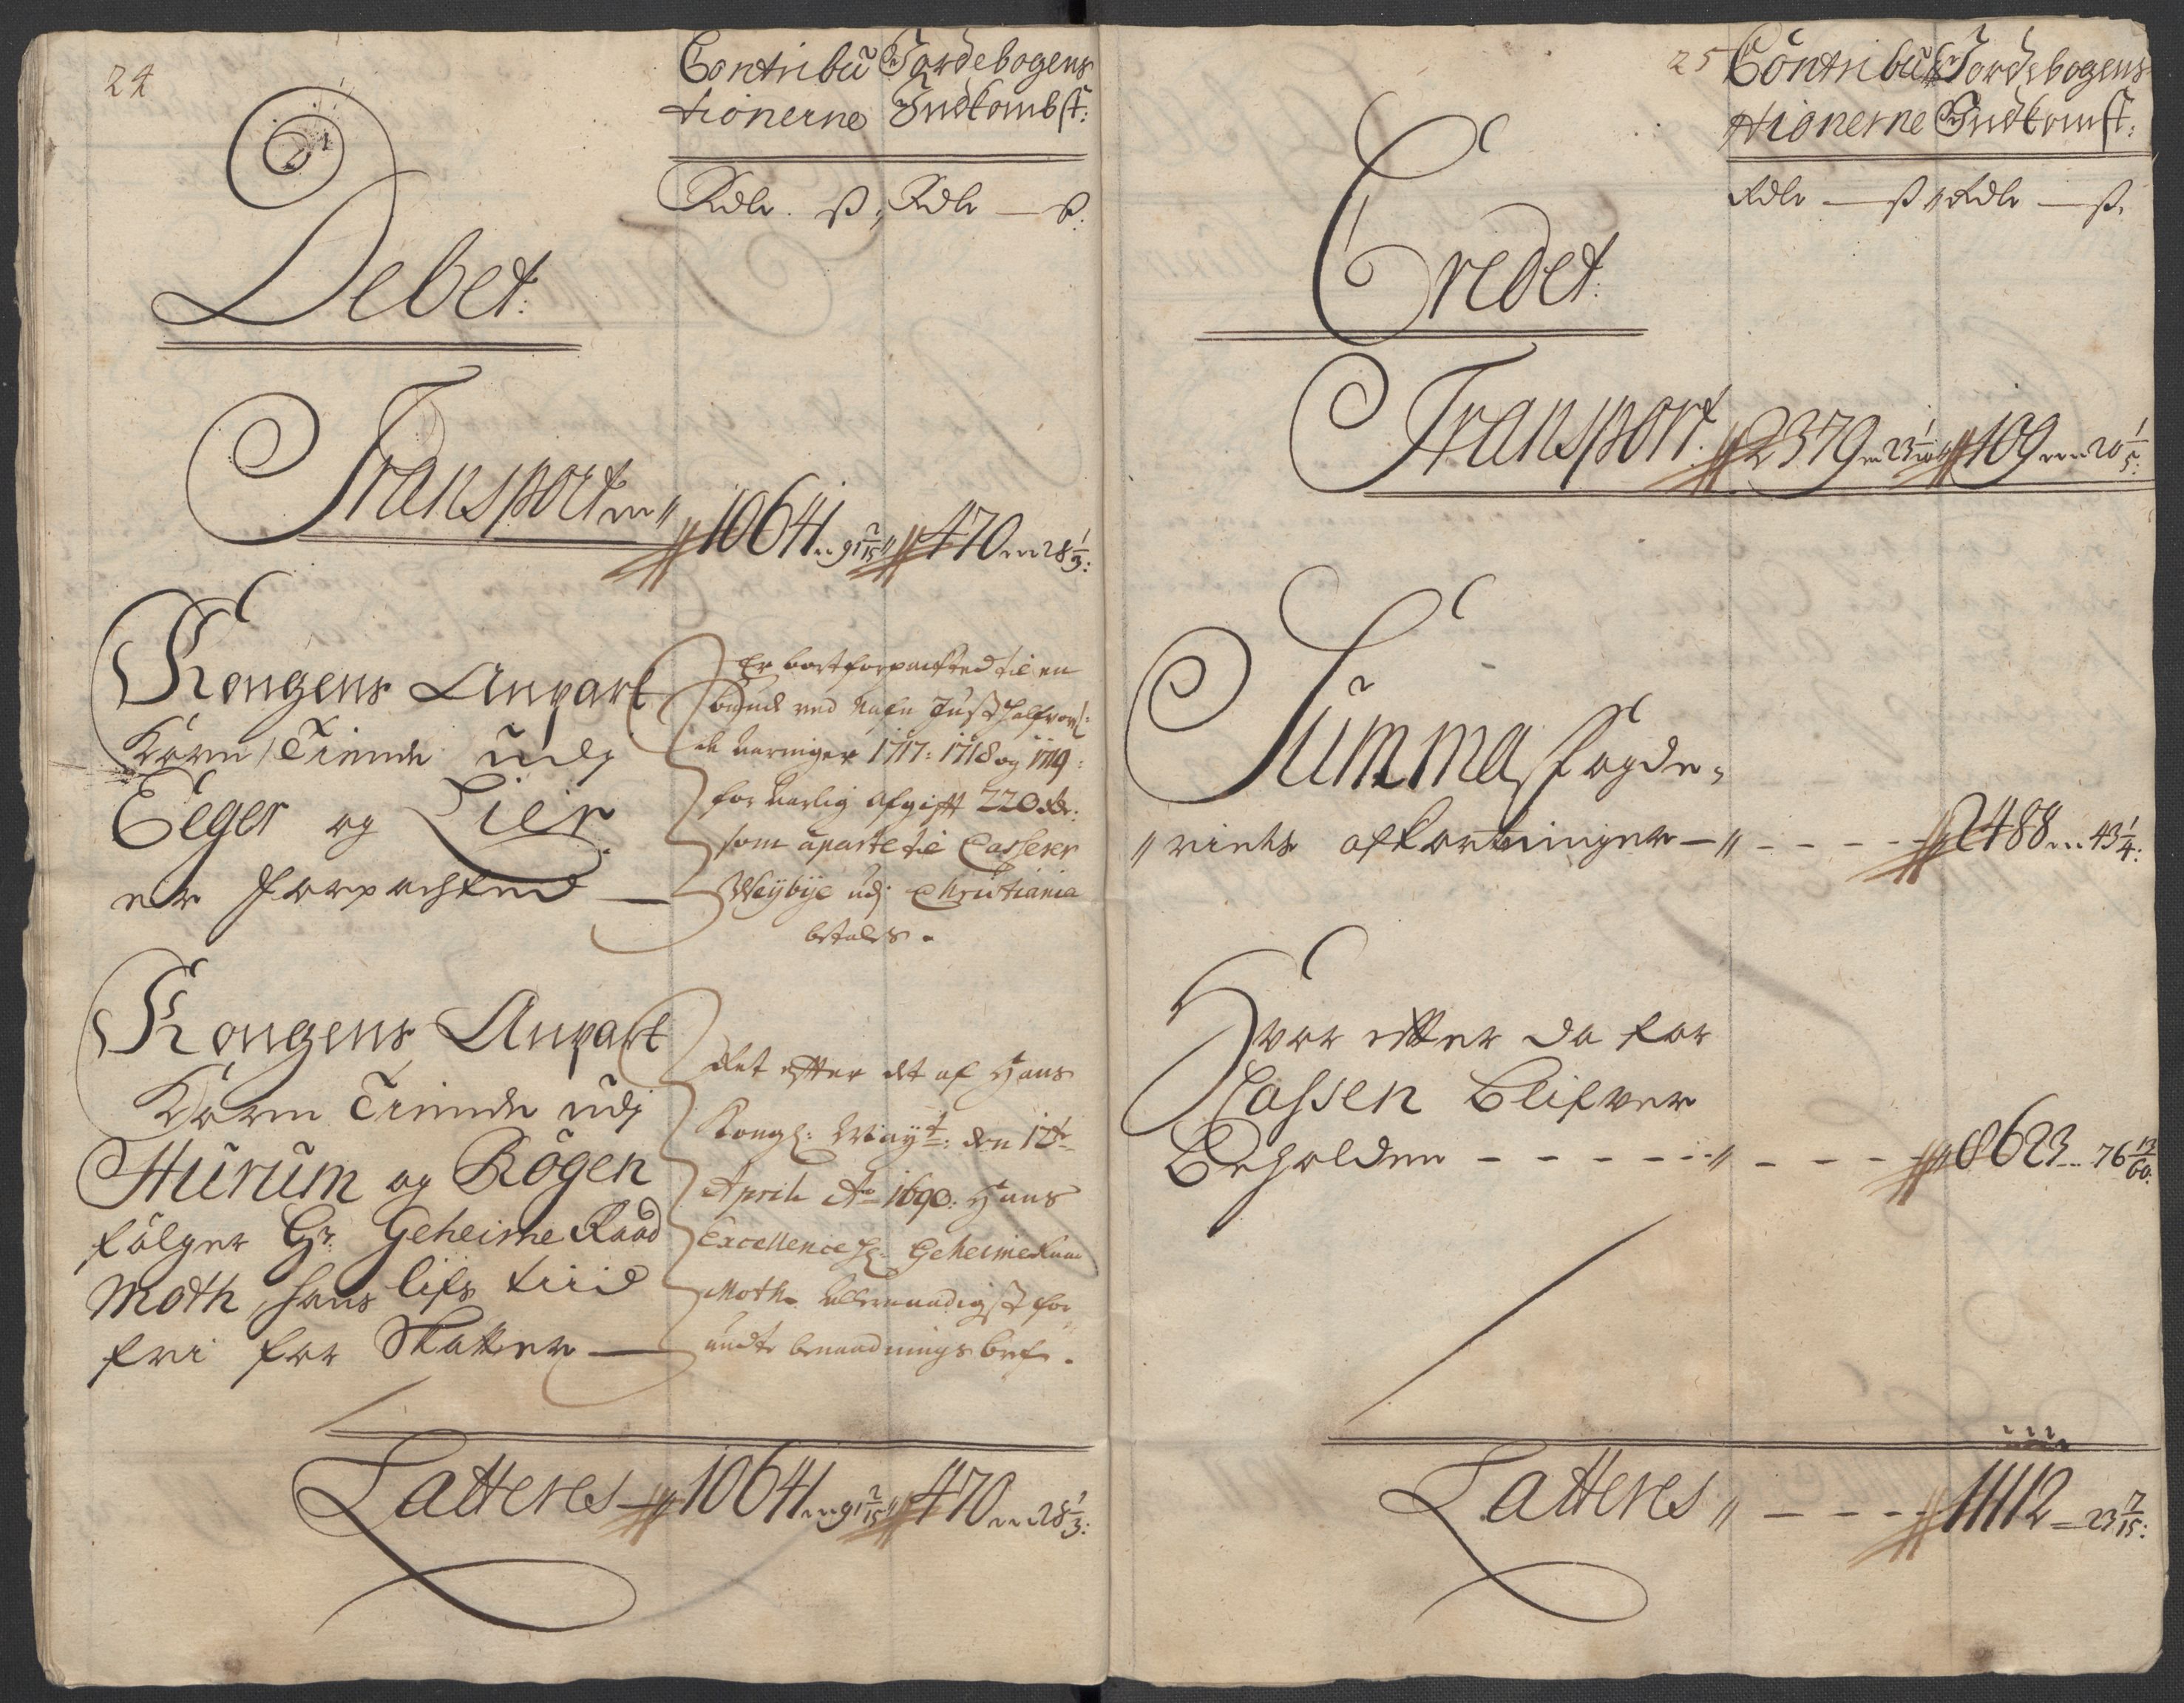 24
Contribu Jordebogens
tionerne Indkombst:
Rdlr. ß: Rdlr — ß.
Debet:
Transport 10641 " 91 2/15 " 470 " 28 1/3:
Kongens Anpart
Korn Tiende udj
Eeger og Lier
er forpachted —
Er bortforpachted til en
Bonde ved Nafn Just Halfvors:
de Aaringer 1717: 1718 og 1719:
for Aarlig Afgifft 220 Rdr:
som aparte til Casserer
Weÿbÿe udj Christiania
betales.
Kongens Anpart
Korn Tiende udj
Hurum og Rögen
følger Hr: Geheime Raad
Moth, hans lifs tiid
fri for Skatter —
Det efter det af Hans
Kongl: Mayt: den 12te
April Ao 1690: Hans
Excellence Hr: Geheime Raad
Moth Allernaadigst for
undte benaadnings bref.
Latteres — 10641 " 91 2/15 " 470 " 28 1/3:
25 Contribu Jordebogens
tionerne Indkomst:
Rdlr — ß " Rdlr — ß.
Credet:
Transport. 2379 " 23 1/20 " 109 " 20 1/5:
Summa Fogde,
"riets afkortninger — " - - - - 2488 " 43 1/4:
Hvor effter da for
Cassen Blifver
Beholden - - - - - " - - - - 8623 " 76 13/60:
Latteres " - - - - 11112 — 23 7/15: